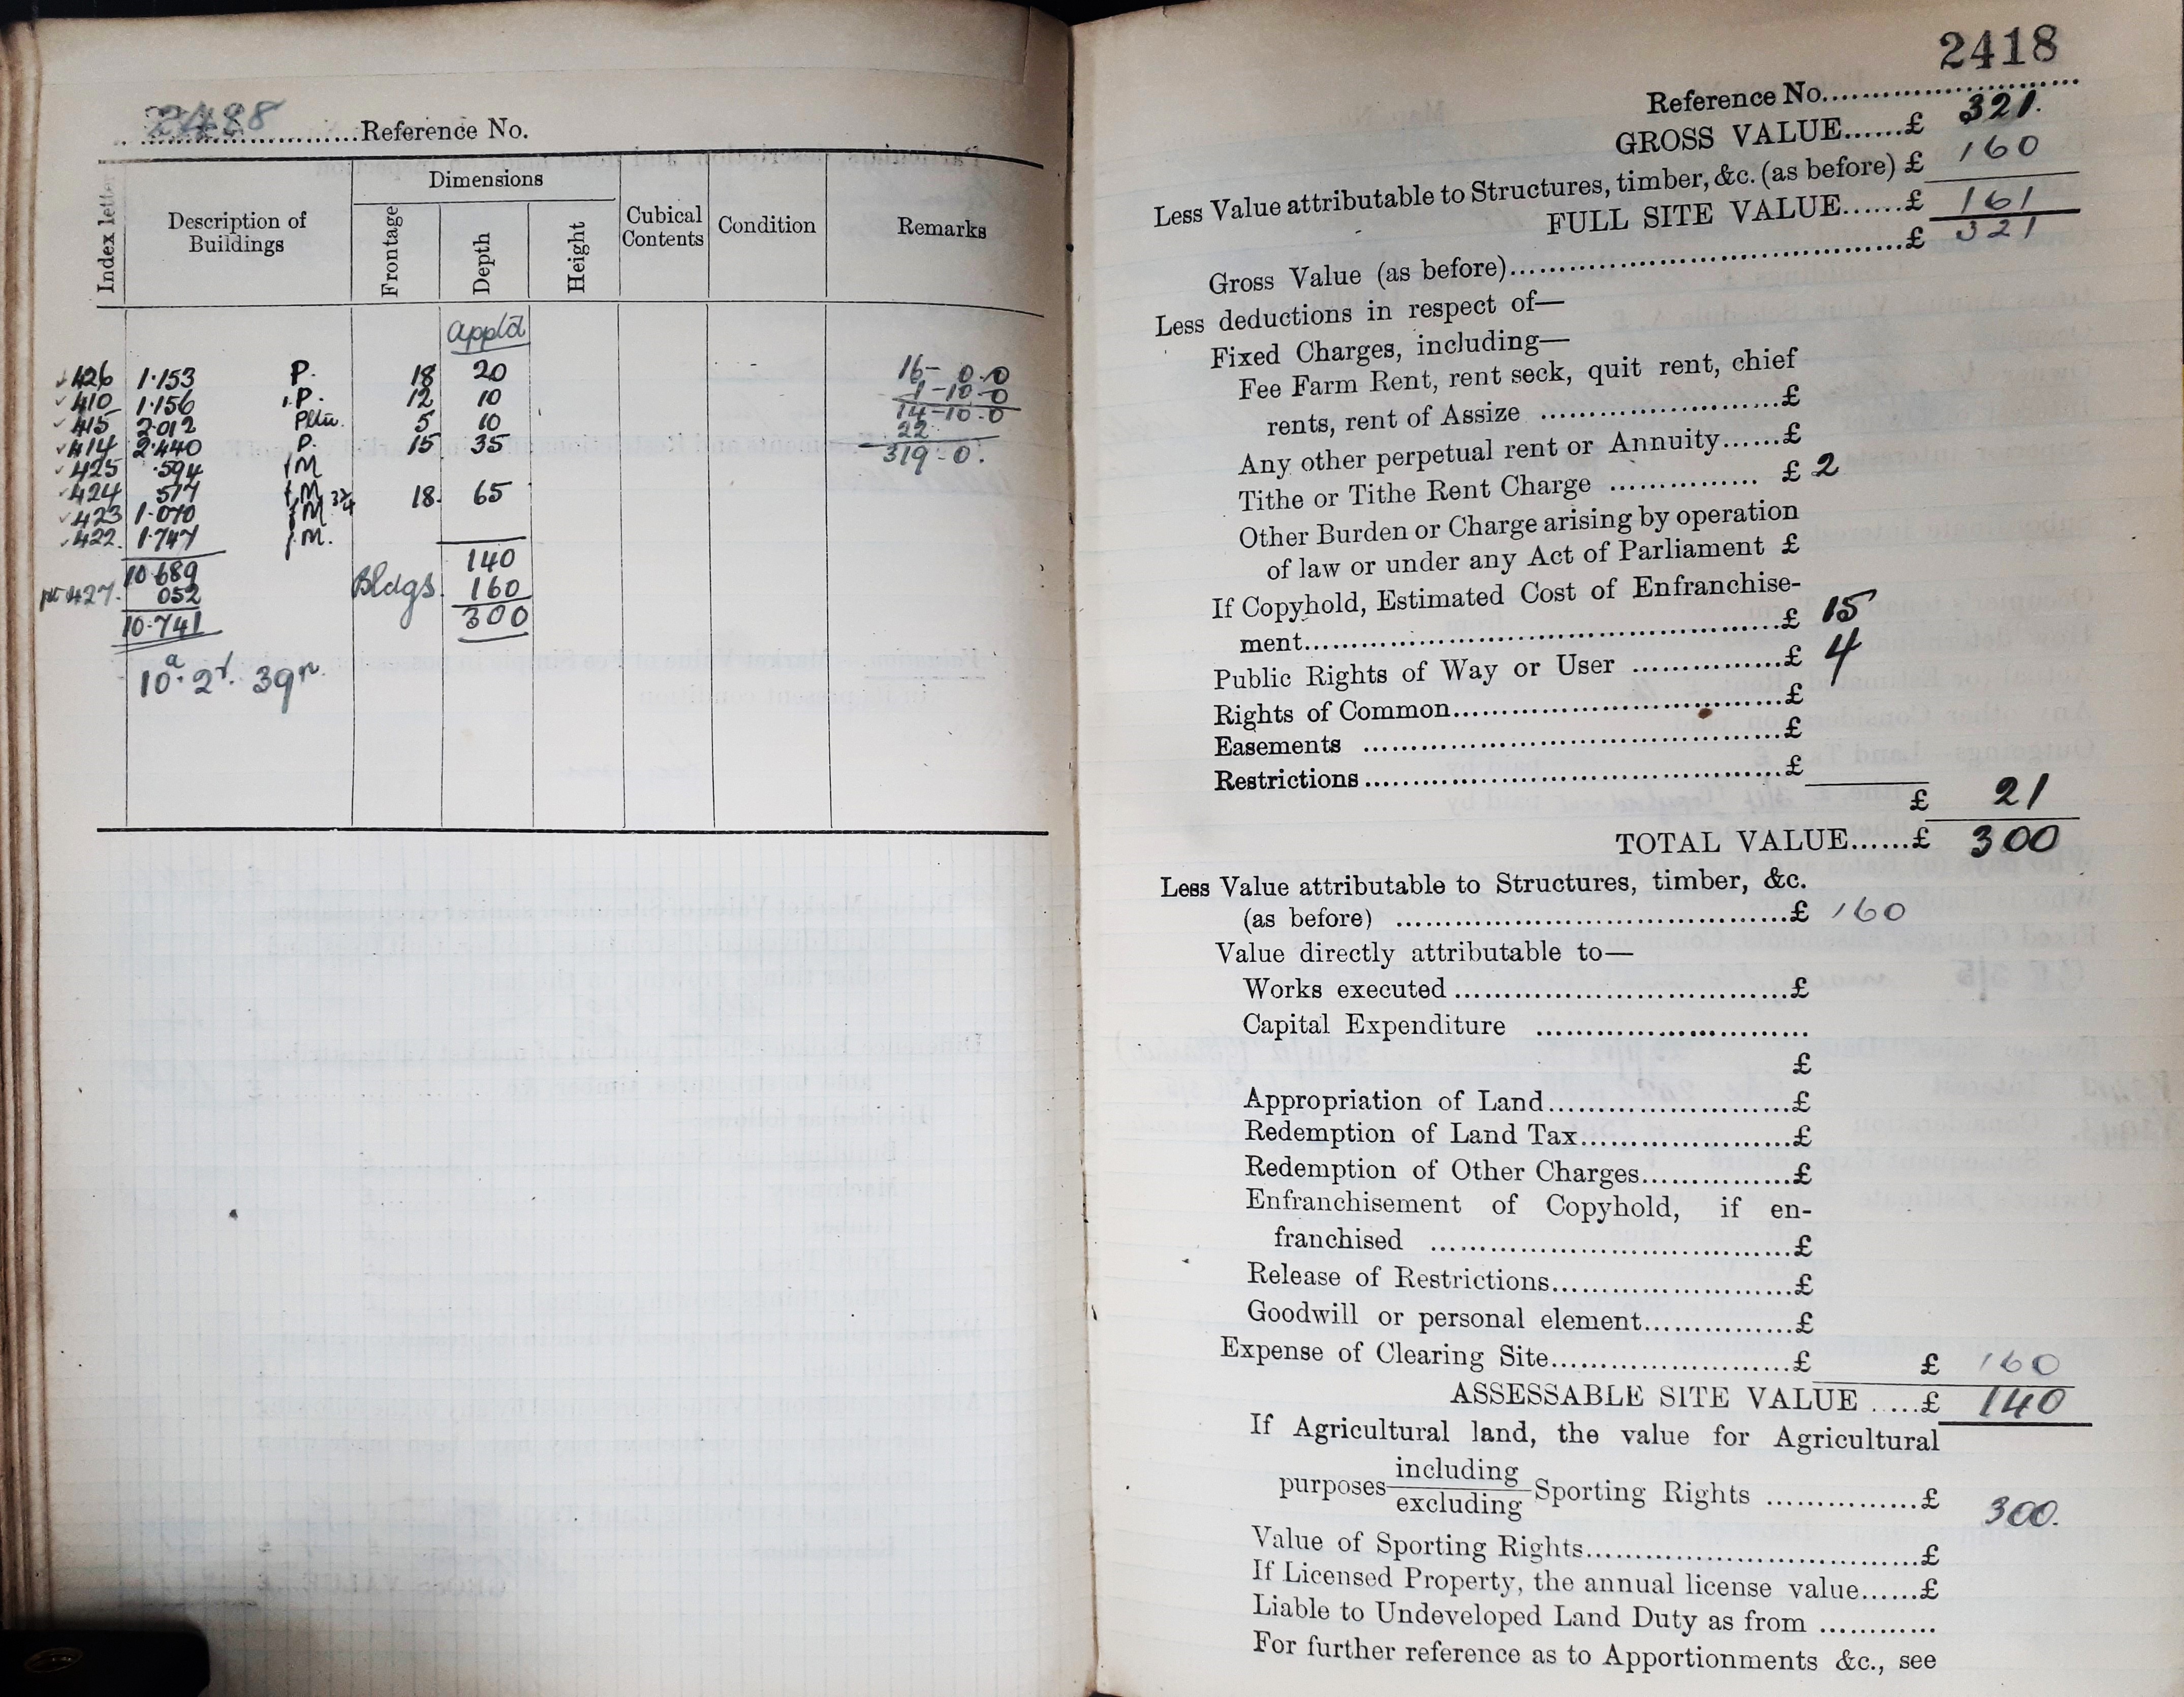 2488
Reference No.
Index letter
Description of Buildings
Dimensions
Frontage
Depth
Height
Cubical Contents
Condition
Remarks
appld
426 1·153 P. 18 20 16- 0.0
410 1·156 P. 12 10 1-10-0
415 2·012 5 10 14-10.0
414 2·440 P. 15 35 22
425 ·594 M 319-0.
424 517 M 3/4 18. 65
423 1·070 M
422. 1·747 M.
10·689 140
pt 427. 052 Bldgs. 160
10·741 300
10a. 2r. 39p.
2418
Reference No.
GROSS VALUE......£ 321.
Less Value attributable to Structures, timber, &c. (as before) £ 160
FULL SITE VALUE......£ 161
Gross Value (as before)..........£ 321
Less deductions in respect of—
Fixed Charges, including—
Fee Farm Rent, rent seck, quit rent, chief
rents, rent of Assize ..........£
Any other perpetual rent or Annuity......£
Tithe or Tithe Rent Charge .......... £ 2
Other Burden or Charge arising by operation
of law or under any Act of Parliament £
If Copyhold, Estimated Cost of Enfranchise-
ment..........£ 15
Public Rights of Way or User ..........£ 4
Rights of Common..........£
Easements ..........£
Restrictions..........£
£ 21
TOTAL VALUE......£ 300
Less Value attributable to Structures, timber, &c.
(as before) ..........£ 160
Value directly attributable to—
Works executed..........£
Capital Expenditure ..........
£
Appropriation of Land..........£
Redemption of Land Tax..........£
Redemption of Other Charges..........£
Enfranchisement of Copyhold, if en-
franchised ..........£
Release of Restrictions..........£
Goodwill or personal element..........£
Expense of Clearing Site..........£ £ 160
ASSESSABLE SITE VALUE .....£ 140
If Agricultural land, the value for Agricultural
purposes including excluding Sporting Rights ..........£ 300.
Value of Sporting Rights..........£
If Licensed Property, the annual license value......£
Liable to Undeveloped Land Duty as from ..........
For further reference as to Apportionments &c., see